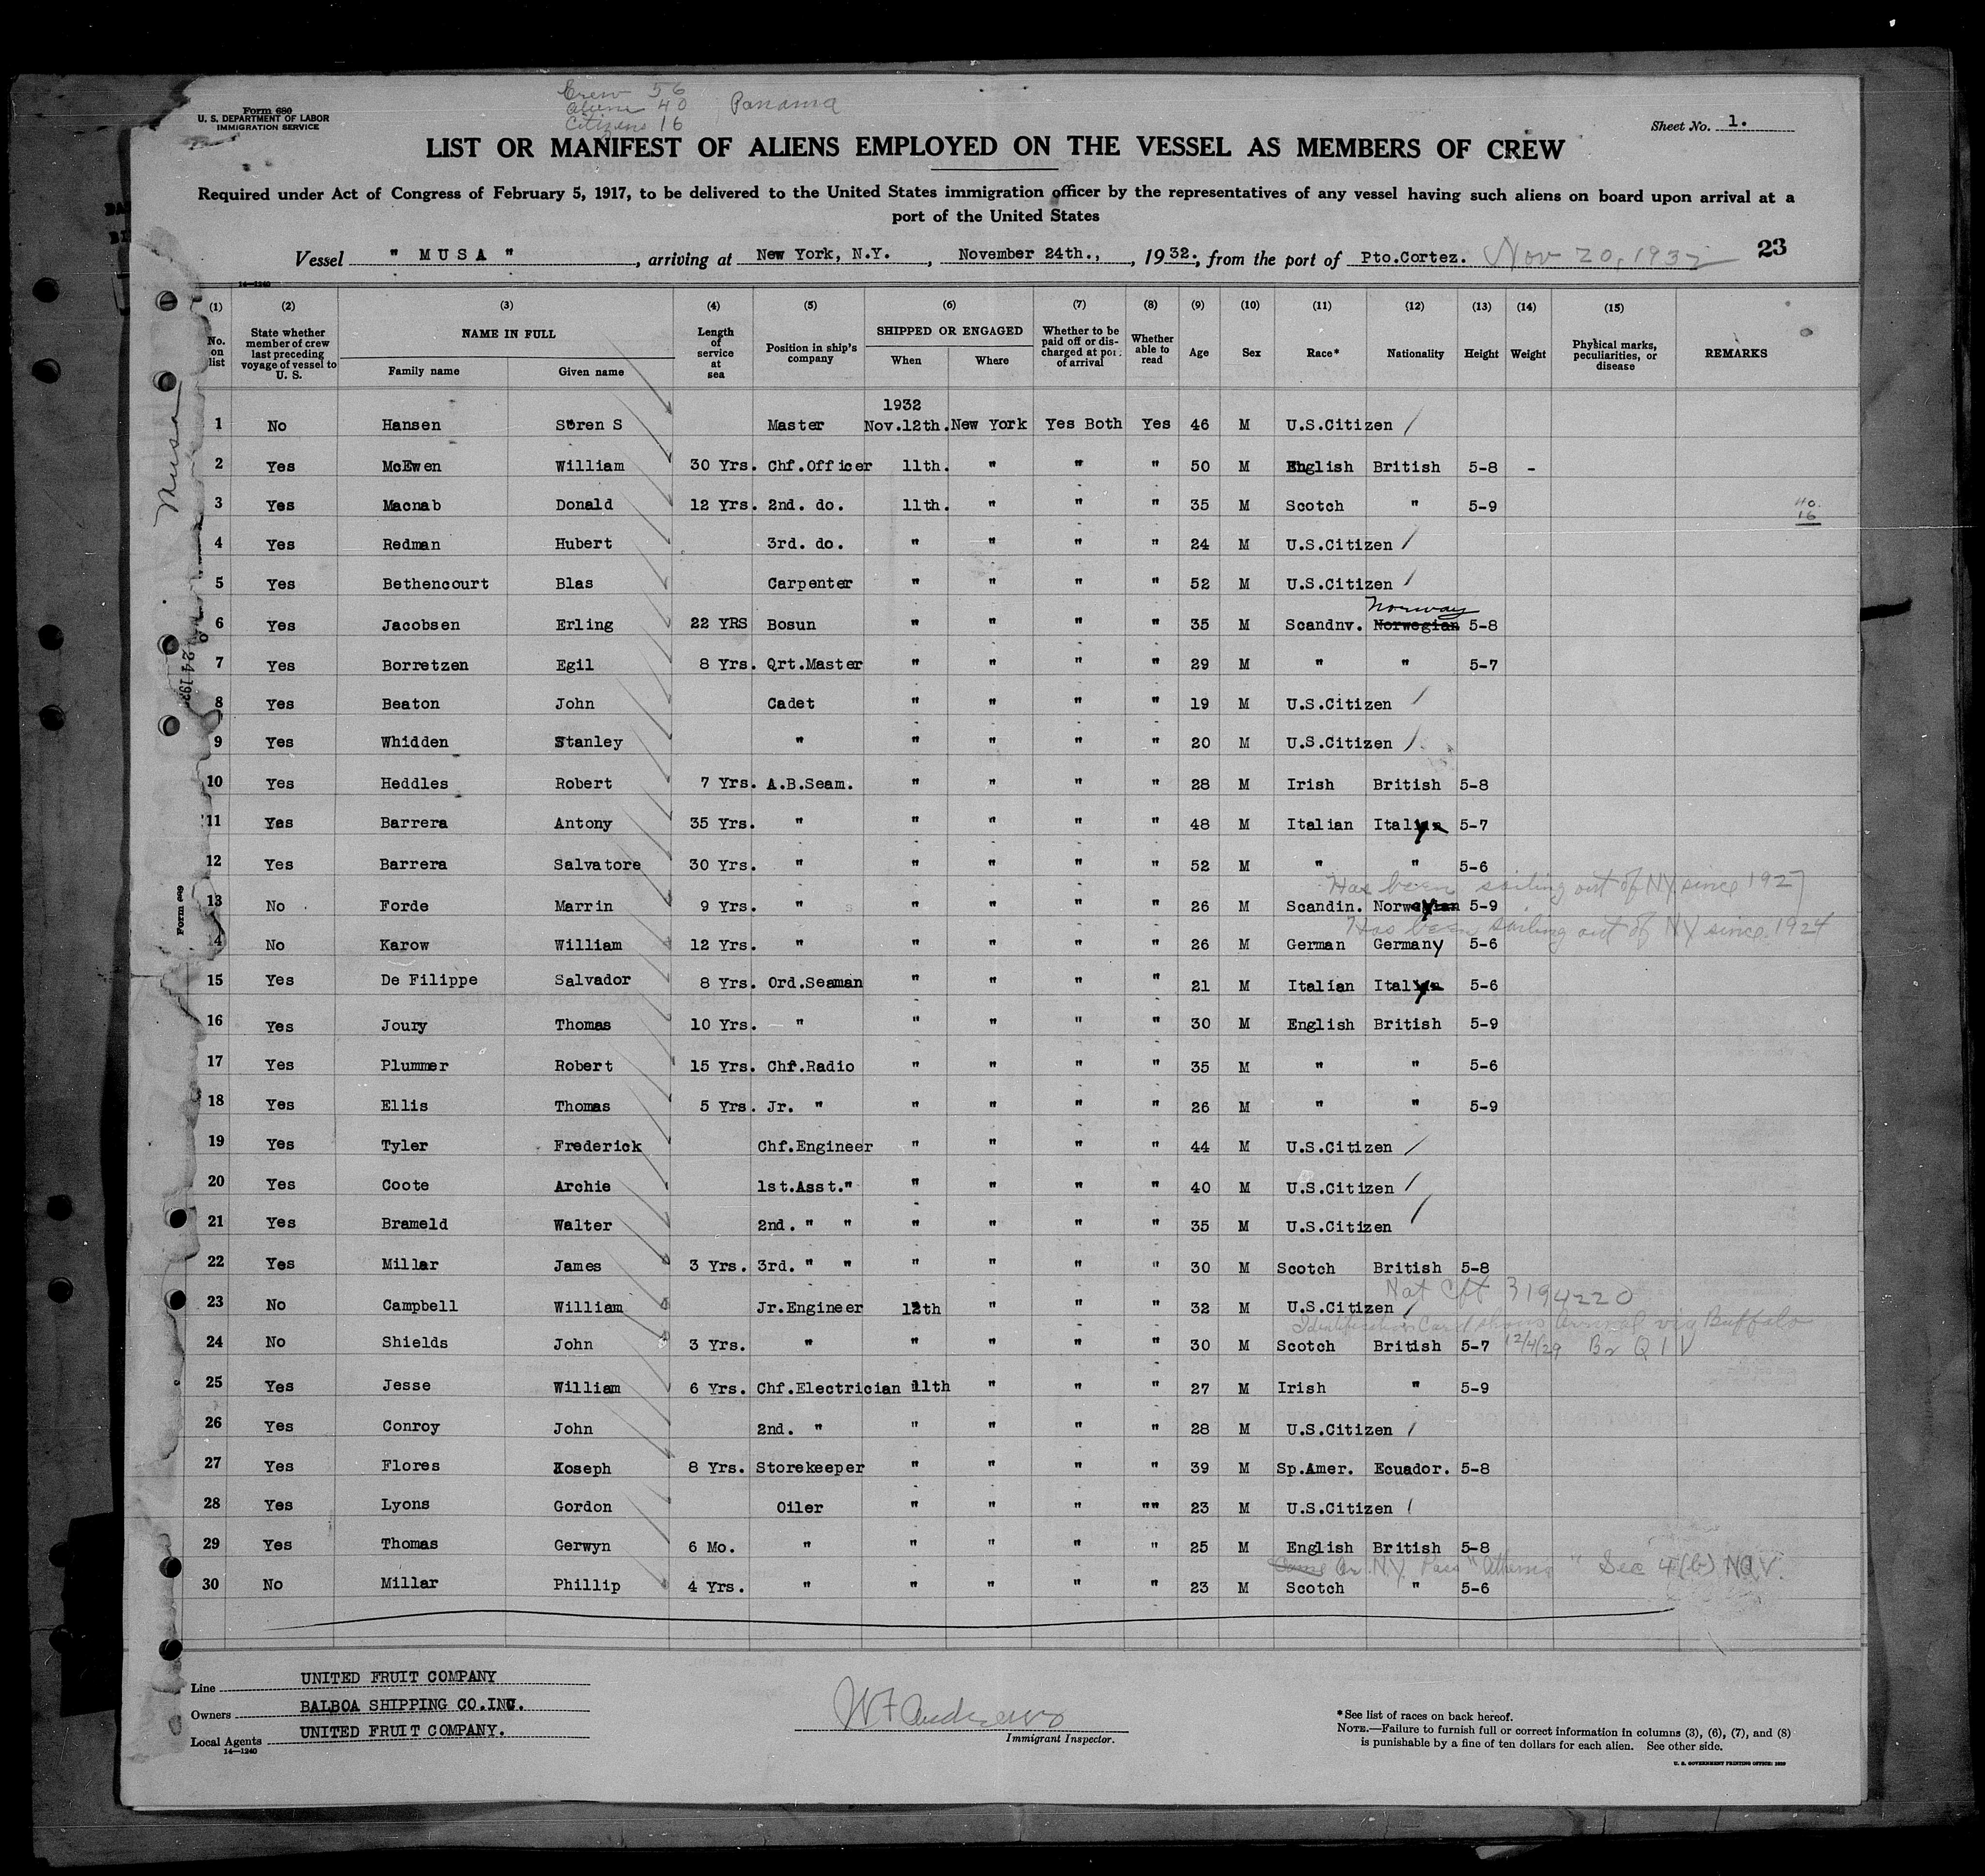 Crew 56
Aliens 40 Panama
Citizens 16
Form 680
U. S. DEPARTMENT OF LABOR
IMMIGRATION SERVICE
Sheet No. 1.
LIST OR MANIFEST OF ALIENS EMPLOYED ON THE VESSEL AS MEMBERS OF CREW
Required under Act of Congress of February 5, 1917, to be delivered to the United States immigration officer by the representatives of any vessel having such aliens on board upon arrival at a
port of the United States
Vessel " MUSA " , arriving at New York, N.Y. , November 24th., , 1932., from the port of Pto.Cortez. Nov 20, 1932 23
14—1240
(1) (2) (3) (4) (5) (6) (7) (8) (9) (10) (11) (12) (13) (14) (15)
No. on list State whether member of crew last preceding voyage of vessel to U. S. NAME IN FULL Family name Given name Length of service at sea Position in ship's company SHIPPED OR ENGAGED When Where Whether to be paid off or discharged at port of arrival Whether able to read Age Sex Race* Nationality Height Weight Physical marks, peculiarities, or disease REMARKS
1932
1 No Hansen Soren S Master Nov.12th. New York Yes Both Yes 46 M U.S.Citizen /
2 Yes McEwen William 30 Yrs. Chf.Officer 11th. " " " 50 M English British 5-8 -
3 Yes Macnab Donald 12 Yrs. 2nd. do. 11th. " " " 35 M Scotch " 5-9
40
16
4 Yes Redman Hubert 3rd. do. " " " " 24 M U.S.Citizen /
5 Yes Bethencourt Blas Carpenter " " " " 52 M U.S.Citizen /
Norway
6 Yes Jacobsen Erling 22 YRS Bosun " " " " 35 M Scandnv. Norwegian 5-8
7 Yes Borretzen Egil 8 Yrs. Qrt.Master " " " " 29 M " " 5-7
8 Yes Beaton John Cadet " " " " 19 M U.S.Citizen /
9 Yes Whidden Stanley " " " " " 20 M U.S.Citizen /
10 Yes Heddles Robert 7 Yrs. A.B.Seam. " " " " 28 M Irish British 5-8
11 Yes Barrera Antony 35 Yrs. " " " " " 48 M Italian Italy 5-7
12 Yes Barrera Salvatore 30 Yrs. " " " " " 52 M " " 5-6
Has been sailing out of NY since 1927
13 No Forde Marrin 9 Yrs. " " " " " 26 M Scandin. Norway 5-9
Has been sailing out of NY since 1924
14 No Karow William 12 Yrs. " " " " " 26 M German Germany 5-6
15 Yes De Filippe Salvador 8 Yrs. Ord.Seaman " " " " 21 M Italian Italy 5-6
16 Yes Joury Thomas 10 Yrs. " " " " " 30 M English British 5-9
17 Yes Plummer Robert 15 Yrs. Chf.Radio " " " " 35 M " " 5-6
18 Yes Ellis Thomas 5 Yrs. Jr. " " " " " 26 M " " 5-9
19 Yes Tyler Frederick Chf.Engineer " " " " 44 M U.S.Citizen /
20 Yes Coote Archie 1st.Asst." " " " " 40 M U.S.Citizen /
21 Yes Brameld Walter 2nd. " " " " " " 35 M U.S.Citizen /
22 Yes Millar James 3 Yrs. 3rd. " " " " " " 30 M Scotch British 5-8
Nat Cft 3194220
23 No Campbell William Jr.Engineer 12th " " " 32 M U.S.Citizen /
Identification Card shows arrival via Buffalo
24 No Shields John 3 Yrs. " " " " " 30 M Scotch British 5-7 12/4/29 Br Q I V
25 Yes Jesse William 6 Yrs. Chf.Electrician 11th " " " 27 M Irish " 5-9
26 Yes Conroy John 2nd. " " " " " 28 M U.S.Citizen /
27 Yes Flores Joseph 8 Yrs. Storekeeper " " " " 39 M Sp.Amer. Ecuador. 5-8
28 Yes Lyons Gordon Oiler " " " "" 23 M U.S.Citizen /
29 Yes Thomas Gerwyn 6 Mo. " " " " " 25 M English British 5-8
Ar. N.Y. Sec 4(b) NQV.
30 No Millar Phillip 4 Yrs. " " " " " 23 M Scotch " 5-6
Musa
Form 689
Line UNITED FRUIT COMPANY
Owners BALBOA SHIPPING CO.INC.
Local Agents UNITED FRUIT COMPANY.
14—1240
Immigrant Inspector.
*See list of races on back hereof.
NOTE.—Failure to furnish full or correct information in columns (3), (6), (7), and (8)
is punishable by a fine of ten dollars for each alien. See other side.
U. S. GOVERNMENT PRINTING OFFICE: